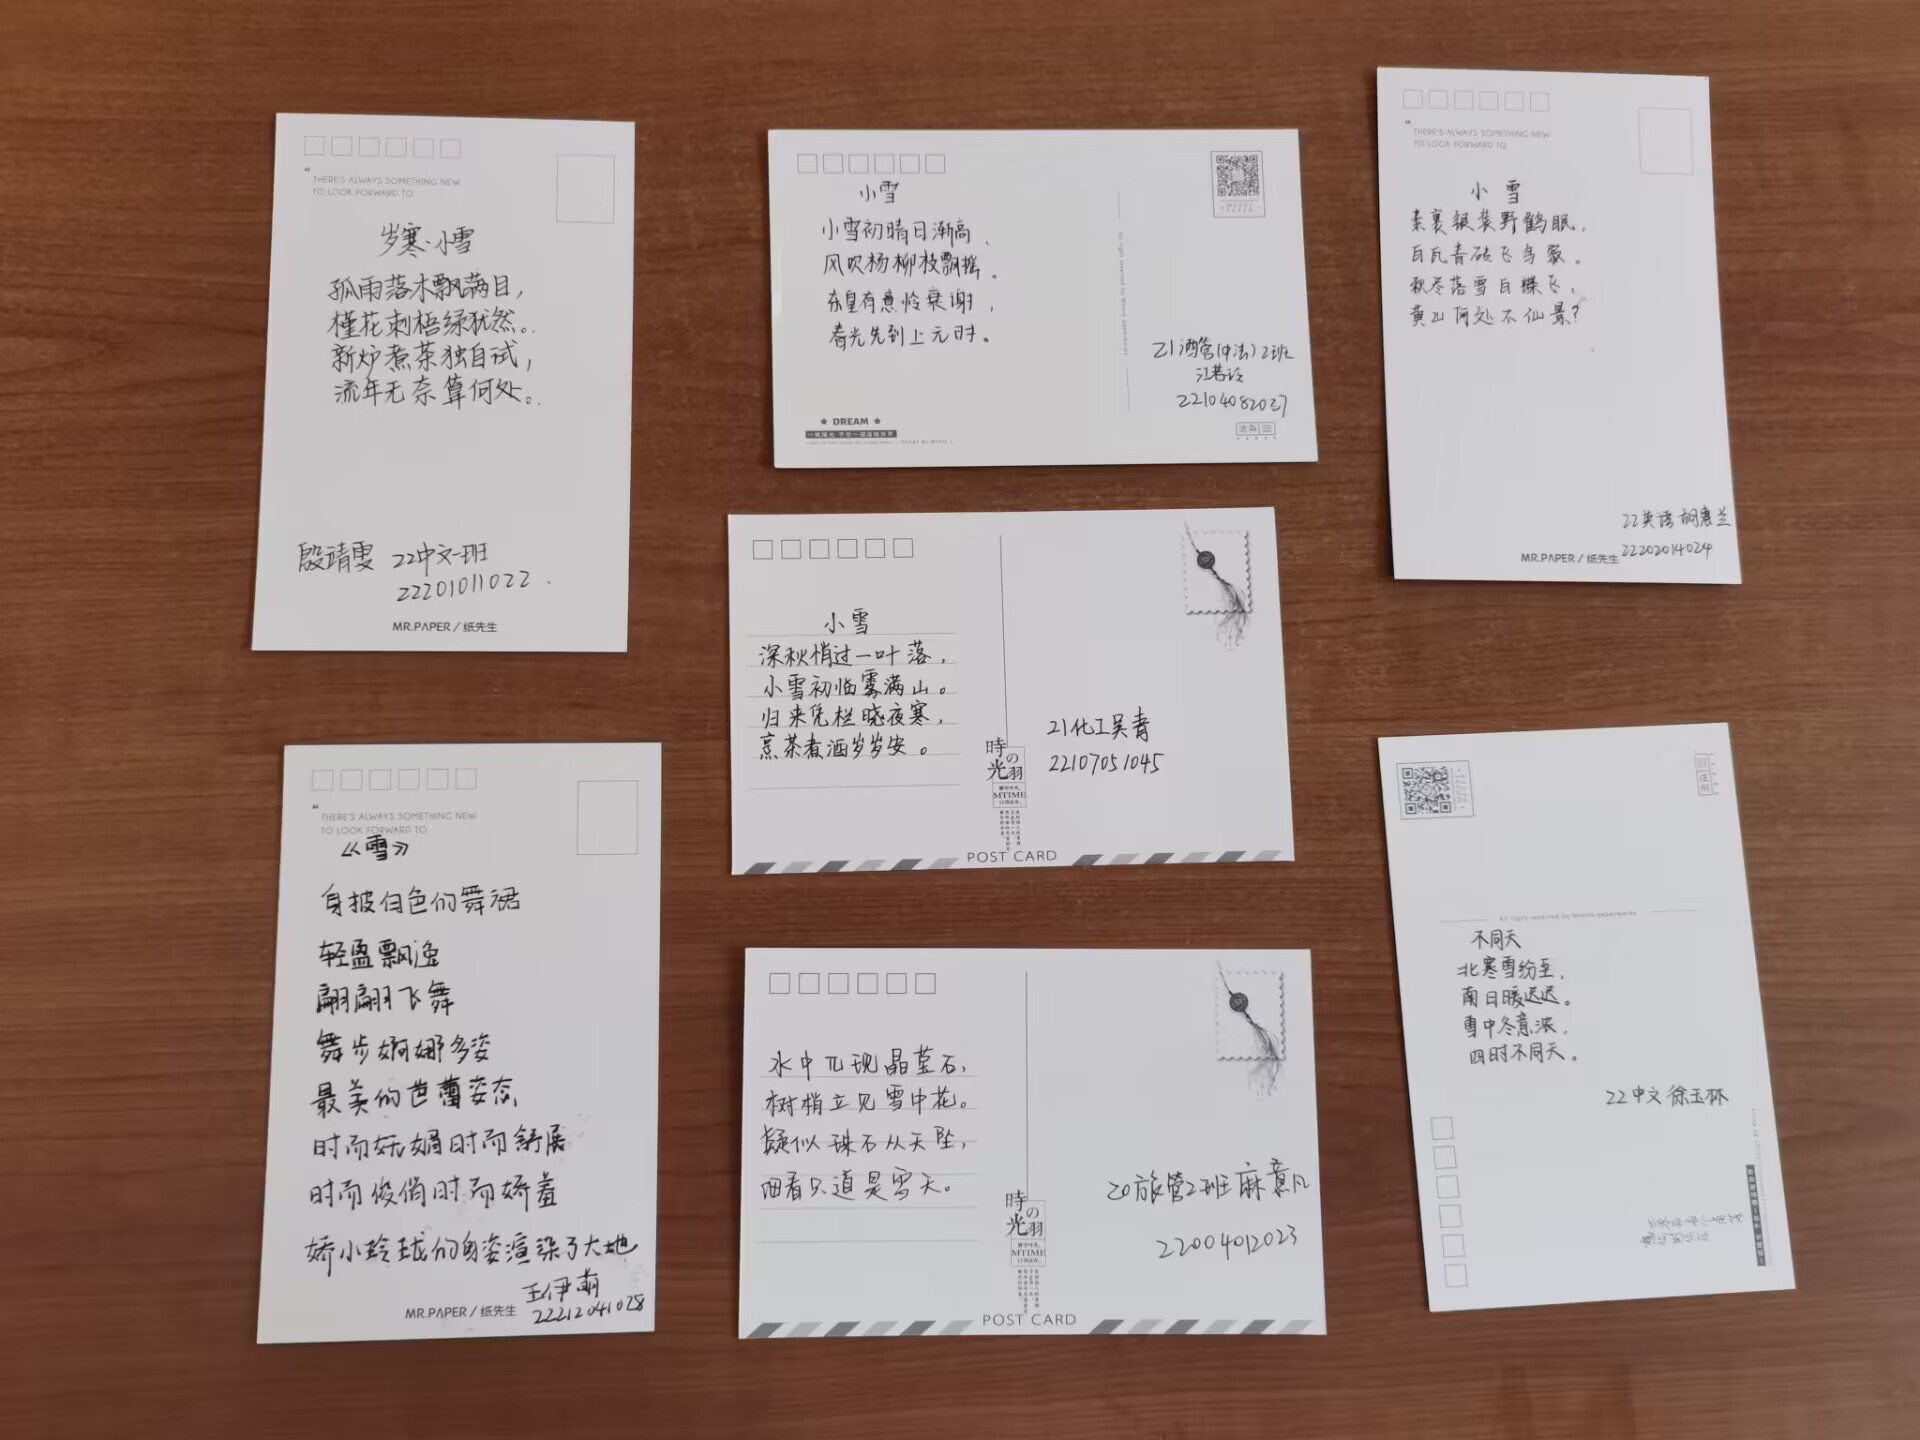 THERE'S ALWAYS SOMETHING NEW
TO LOOK FORWARD TO
岁寒·小雪
孤雨落木飘满目，
槿花刺梧绿犹然。
新炉煮茶独自试，
流年无奈算何处。
殷靖雯 22中文一班
22201011022
MR.PAPER/纸先生
小雪
小雪初晴日渐高、
风吹杨柳枝飘摇。
东皇有意怜衰谢，
春光先到上元时。
21酒管(中法)2班
22104082037
★ DREAM ★
THERE'S ALWAYS SOMETHING NEW
TO LOOK FORWARD TO
小雪
素裹银装野鹤眠，
白瓦青砖飞鸟聚。
秋尽落雪白蝶飞，
黄山何处不仙景？
22英语 胡惠兰
22202014024
MR.PAPER/纸先生
小雪
深秋悄过一叶落，
小雪初临雾满山。
归来凭栏晓夜寒，
烹茶煮酒岁岁安。
21化工吴青
22107051045
時光の羽
MTIME
POST CARD
THERE'S ALWAYS SOMETHING NEW
TO LOOK FORWARD TO
《雪》
身披白色的舞裙
轻盈飘逸
翩翩飞舞
舞步婀娜多姿
最美的芭蕾姿态
时而妩媚时而舒展
时而俊俏时而娇羞
娇小玲珑的身姿渲染了大地
王伊萌
22212041028
MR.PAPER/纸先生
水中兀现晶莹石，
树梢立见雪中花。
疑似珠石从天坠，
细看只道是雪天。
20旅管2班麻意凡
22004012023
時光の羽
MTIME
POST CARD
All right reserved by Moore paperworks
不同天
北寒雪纷至，
南日暖迟迟。
雪中冬意浓，
四时不同天。
22中文 徐玉林